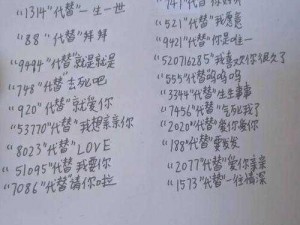 "1314"代替"一生一世
"88"代替"拜拜
"9494"代替"就是就是
"748"代替"去死吧
"920"代替"就爱你
"53770"代替"我想亲亲你
"8023"代替"LOVE
"51095"代替"我要你
"7086"代替"请你啦
"521"代替"我愿意
"9421"代替"你是唯一
"52071628"代替"我喜欢你很久了
"555"代替"呜呜呜
"3344"代替"生生事事
"7456"代替"气死我了
"2020"代替"爱你爱你
"188"代替"要发发
"2077"代替"爱你亲亲
"1573"代替"一住情深